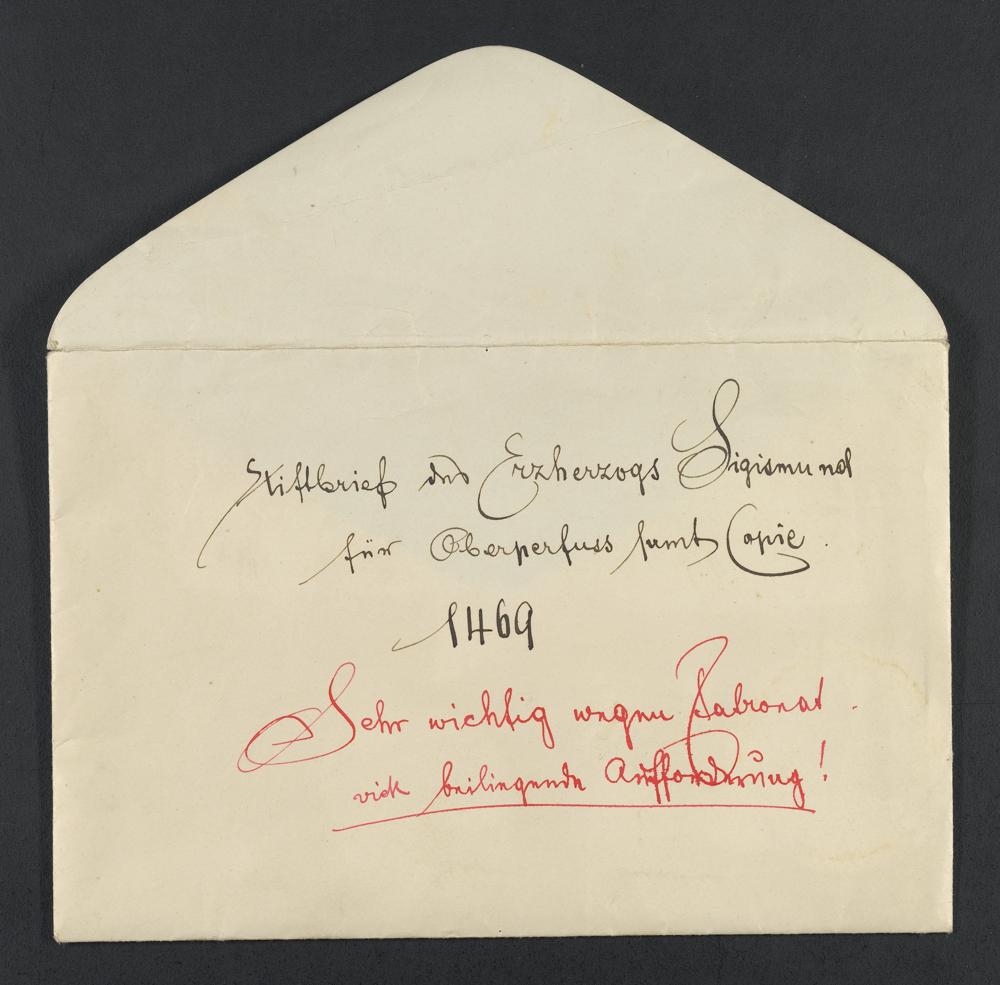 Stiftbrief des Erzherzogs Sigismund
für Oberperfuss samt Copie.
1469
Sehr wichtig wegen Patronat.
vide beiliegende Aufforderung!